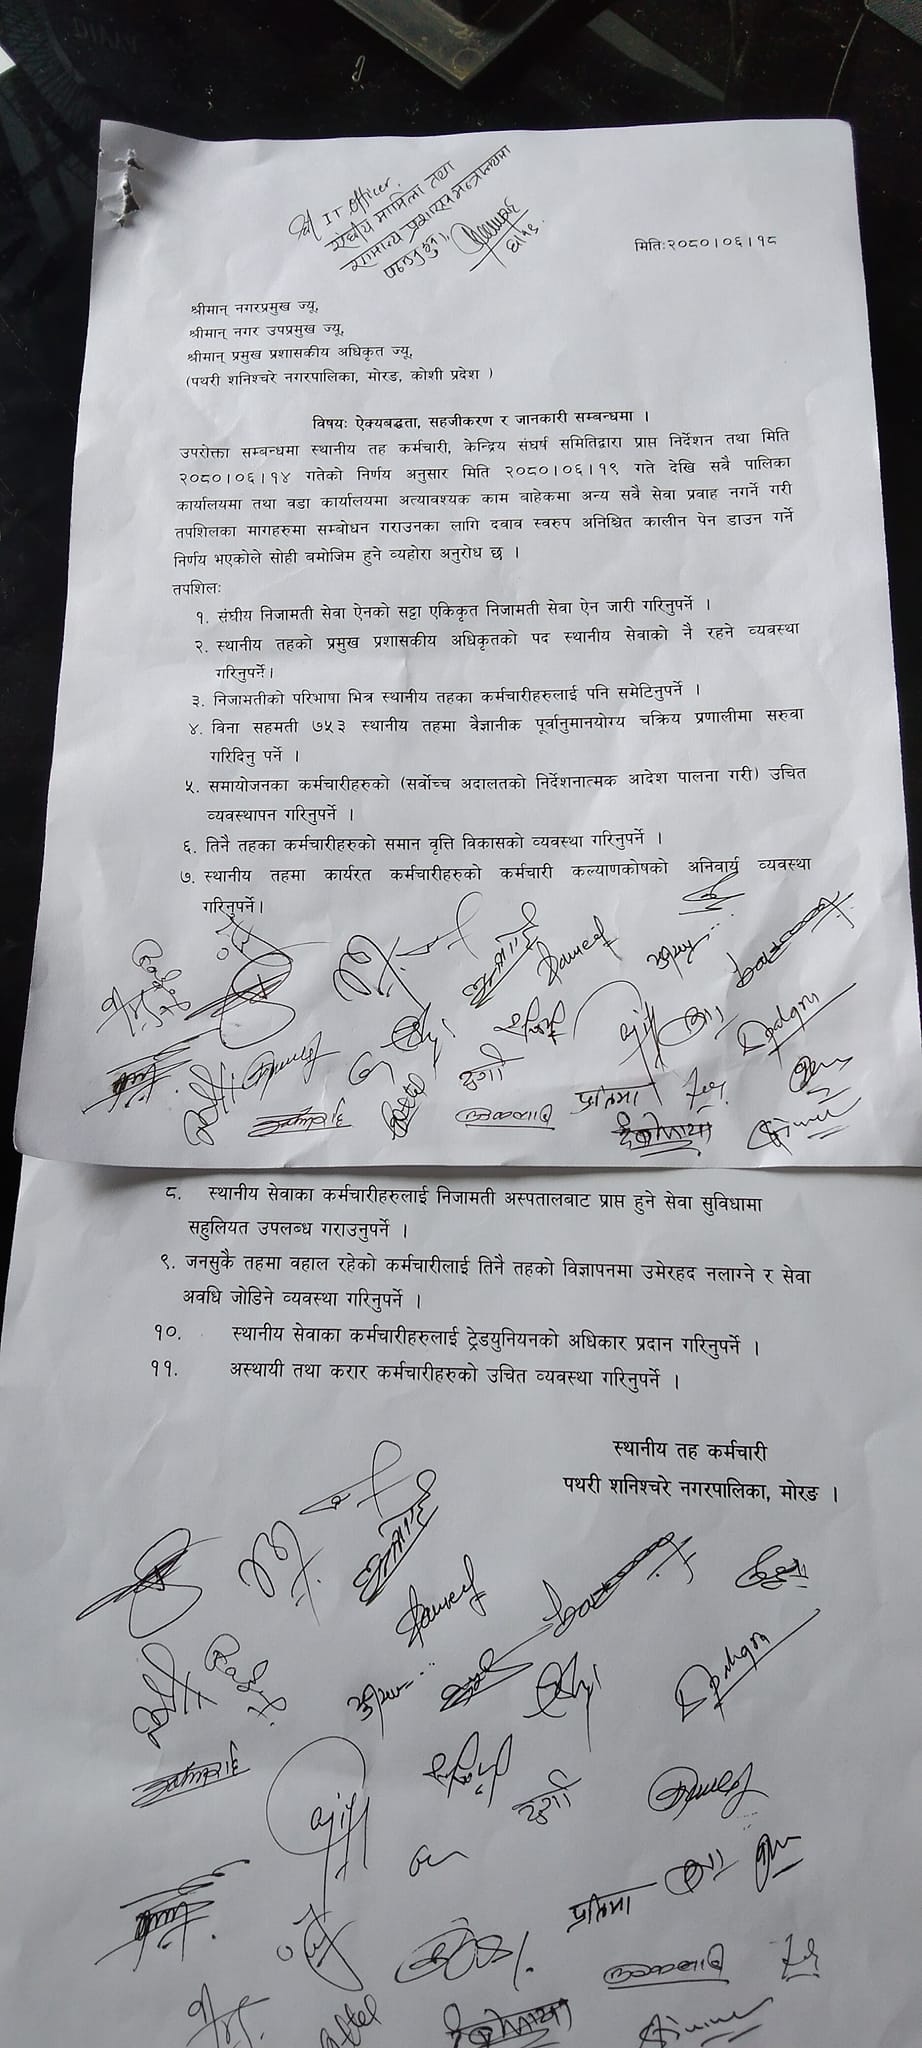 श्री IT officer.
संघीय मामिला तथा
सामान्य प्रशासन मन्त्रालयमा
मितिः२०८०।०६।१८
श्रीमान् नगरप्रमुख ज्यू,
श्रीमान् नगर उपप्रमुख ज्यू,
श्रीमान् प्रमुख प्रशासकीय अधिकृत ज्यू,
(पथरी शनिश्चरे नगरपालिका, मोरङ, कोशी प्रदेश )
विषयः ऐक्यबद्धता, सहजीकरण र जानकारी सम्बन्धमा ।
उपरोक्ता सम्बन्धमा स्थानीय तह कर्मचारी, केन्द्रिय संघर्ष समितिद्वारा प्राप्त निर्देशन तथा मिति
२०८०।०६।१४ गतेको निर्णय अनुसार मिति २०८०।०६।१९ गते देखि सवै पालिका
कार्यालयमा तथा वडा कार्यालयमा अत्यावश्यक काम बाहेकमा अन्य सवै सेवा प्रवाह नगर्ने गरी
तपशिलका मागहरुमा सम्बोधन गराउनका लागि दवाव स्वरुप अनिश्चित कालीन पेन डाउन गर्ने
निर्णय भएकोले सोही बमोजिम हुने व्यहोरा अनुरोध छ ।
तपशिलः
१. संघीय निजामती सेवा ऐनको सट्टा एकिकृत निजामती सेवा ऐन जारी गरिनुपर्ने ।
२. स्थानीय तहको प्रमुख प्रशासकीय अधिकृतको पद स्थानीय सेवाको नै रहने व्यवस्था
गरिनुपर्ने।
३. निजामतीको परिभाषा भित्र स्थानीय तहका कर्मचारीहरुलाई पनि समेटिनुपर्ने ।
४. विना सहमती ७५३ स्थानीय तहमा वैज्ञानीक पूर्वानुमानयोग्य चक्रिय प्रणालीमा सरुवा
गरिदिनु पर्ने ।
५. समायोजनका कर्मचारीहरुको (सर्वोच्च अदालतको निर्देशनात्मक आदेश पालना गरी) उचित
व्यवस्थापन गरिनुपर्ने ।
६. तिनै तहका कर्मचारीहरुको समान वृत्ति विकासको व्यवस्था गरिनुपर्ने ।
७. स्थानीय तहमा कार्यरत कर्मचारीहरुको कर्मचारी कल्याणकोषको अनिवार्य व्यवस्था
गरिनुपर्ने।
दुर्गा
प्रतिमा
८. स्थानीय सेवाका कर्मचारीहरुलाई निजामती अस्पतालबाट प्राप्त हुने सेवा सुविधामा
सहुलियत उपलब्ध गराउनुपर्ने ।
९. जनसुकै तहमा वहाल रहेको कर्मचारीलाई तिनै तहको विज्ञापनमा उमेरहद नलाग्ने र सेवा
अवधि जोडिने व्यवस्था गरिनुपर्ने ।
१०. स्थानीय सेवाका कर्मचारीहरुलाई ट्रेडयुनियनको अधिकार प्रदान गरिनुपर्ने ।
११. अस्थायी तथा करार कर्मचारीहरुको उचित व्यवस्था गरिनुपर्ने ।
स्थानीय तह कर्मचारी
पथरी शनिश्चरे नगरपालिका, मोरङ ।
दुर्गा
प्रतिमा